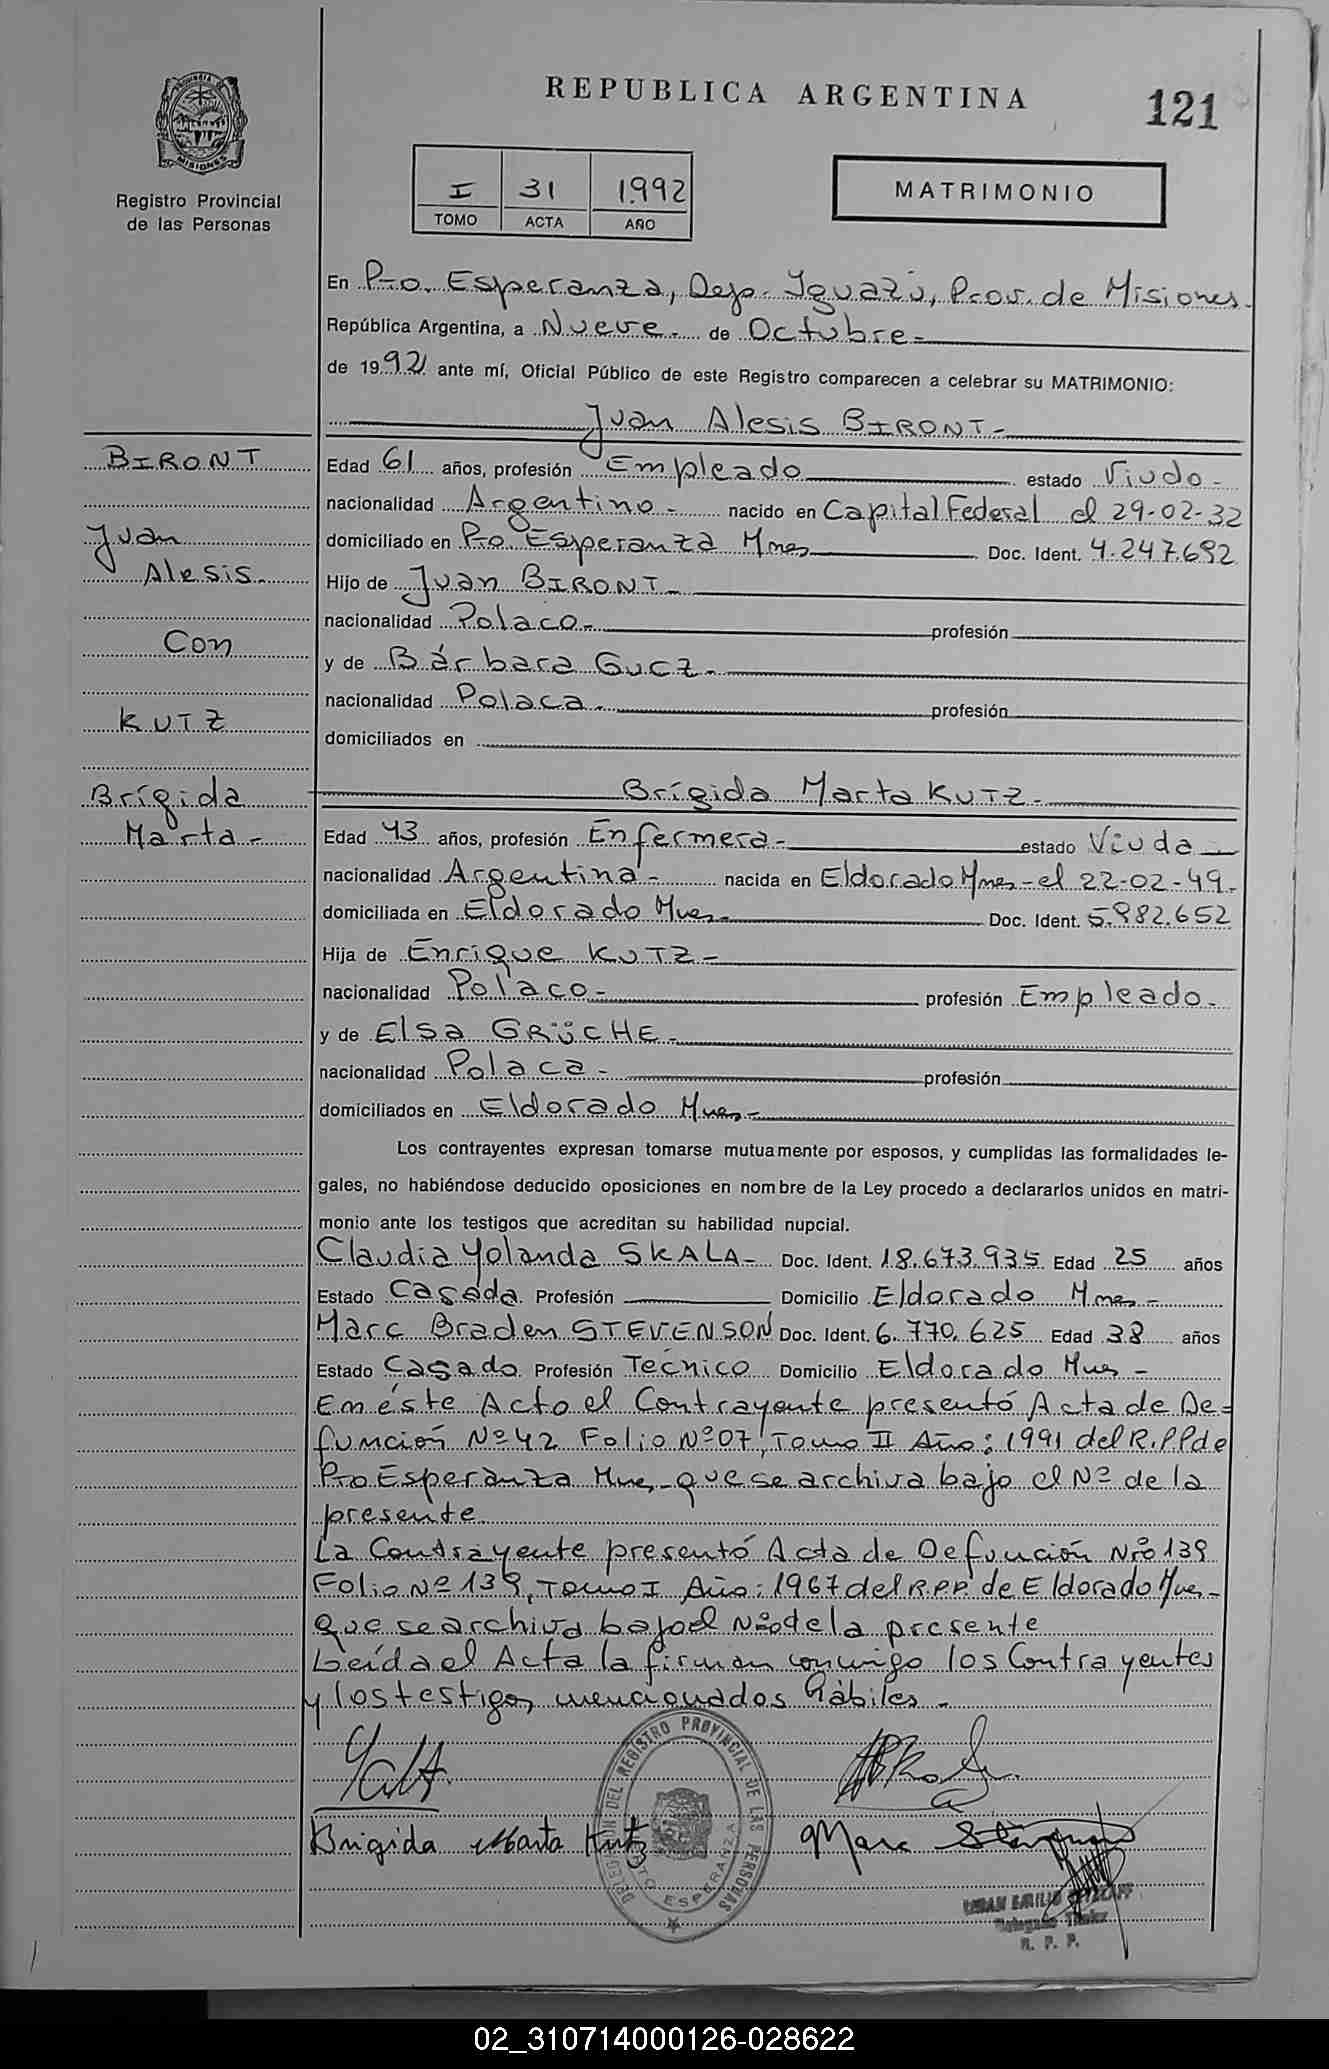 REPUBLICA ARGENTINA
121
MISIONES
Registro Provincial
de las Personas
I 31 1.992
TOMO ACTA AÑO
MATRIMONIO
En Pto. Esperanza, Dep. Iguazú, Prov. de Misiones.
República Argentina, a Nueve. de Octubre-
de 1992 ante mí, Oficial Público de este Registro comparecen a celebrar su MATRIMONIO:
Juan Alesis BIRONT-
BIRONT
Juan
Alesis.
Con
KUTZ
Brígida
Marta-
Edad 61 años, profesión Empleado estado Viudo-
nacionalidad Argentino- nacido en Capital Federal el 29-02-32
domiciliado en Pto. Esperanza Mnes Doc. Ident. 4.247.692
Hijo de Juan BIRONT-
nacionalidad Polaco- profesión
y de Bárbara GUCZ-
nacionalidad Polaca. profesión
domiciliados en
Brígida Marta KUTZ-
Edad 43 años, profesión Enfermera- estado Viuda
nacionalidad Argentina- nacida en Eldorado Mnes-el 22-02-49-
domiciliada en Eldorado Mnes- Doc. Ident. 5.982.652
Hija de Enrique KUTZ-
nacionalidad Polaco- profesión Empleado-
y de Elsa GRÜCHE-
nacionalidad Polaca- profesión
domiciliados en Eldorado Mnes-
Los contrayentes expresan tomarse mutuamente por esposos, y cumplidas las formalidades le-
gales, no habiéndose deducido oposiciones en nombre de la Ley procedo a declararlos unidos en matri-
monio ante los testigos que acreditan su habilidad nupcial.
Claudia Yolanda SKALA- Doc. Ident. 18.673.935 Edad 25 años
Estado Casada Profesión Domicilio Eldorado Mnes-
Marc Braden STEVENSON Doc. Ident. 6.770.625 Edad 38 años
Estado Casado Profesión Tecnico Domicilio Eldorado Mnes-
En éste Acto el Contrayente presentó Acta de De=
función Nº 42 Folio Nº 07, Tomo II Año: 1991 del R.P.P de
Pto Esperanza Mnes-que se archiva bajo el Nº de la
presente
La Contrayente presentó Acta de Defunción Nro 139
Folio Nº 139, Tomo I Año: 1967 del R.P.P. de Eldorado Mnes-
que se archiva bajo el Nro de la presente
Leída el Acta la firman conmigo los Contrayentes
y los testigos mencionados hábiles-
DELEGACION DEL REGISTRO PROVINCIAL DE LAS PERSONAS
PUERTO ESPERANZA
Brigida Marta Kutz
Marc Stevenson
R. P. P.
02_310714000126-028622